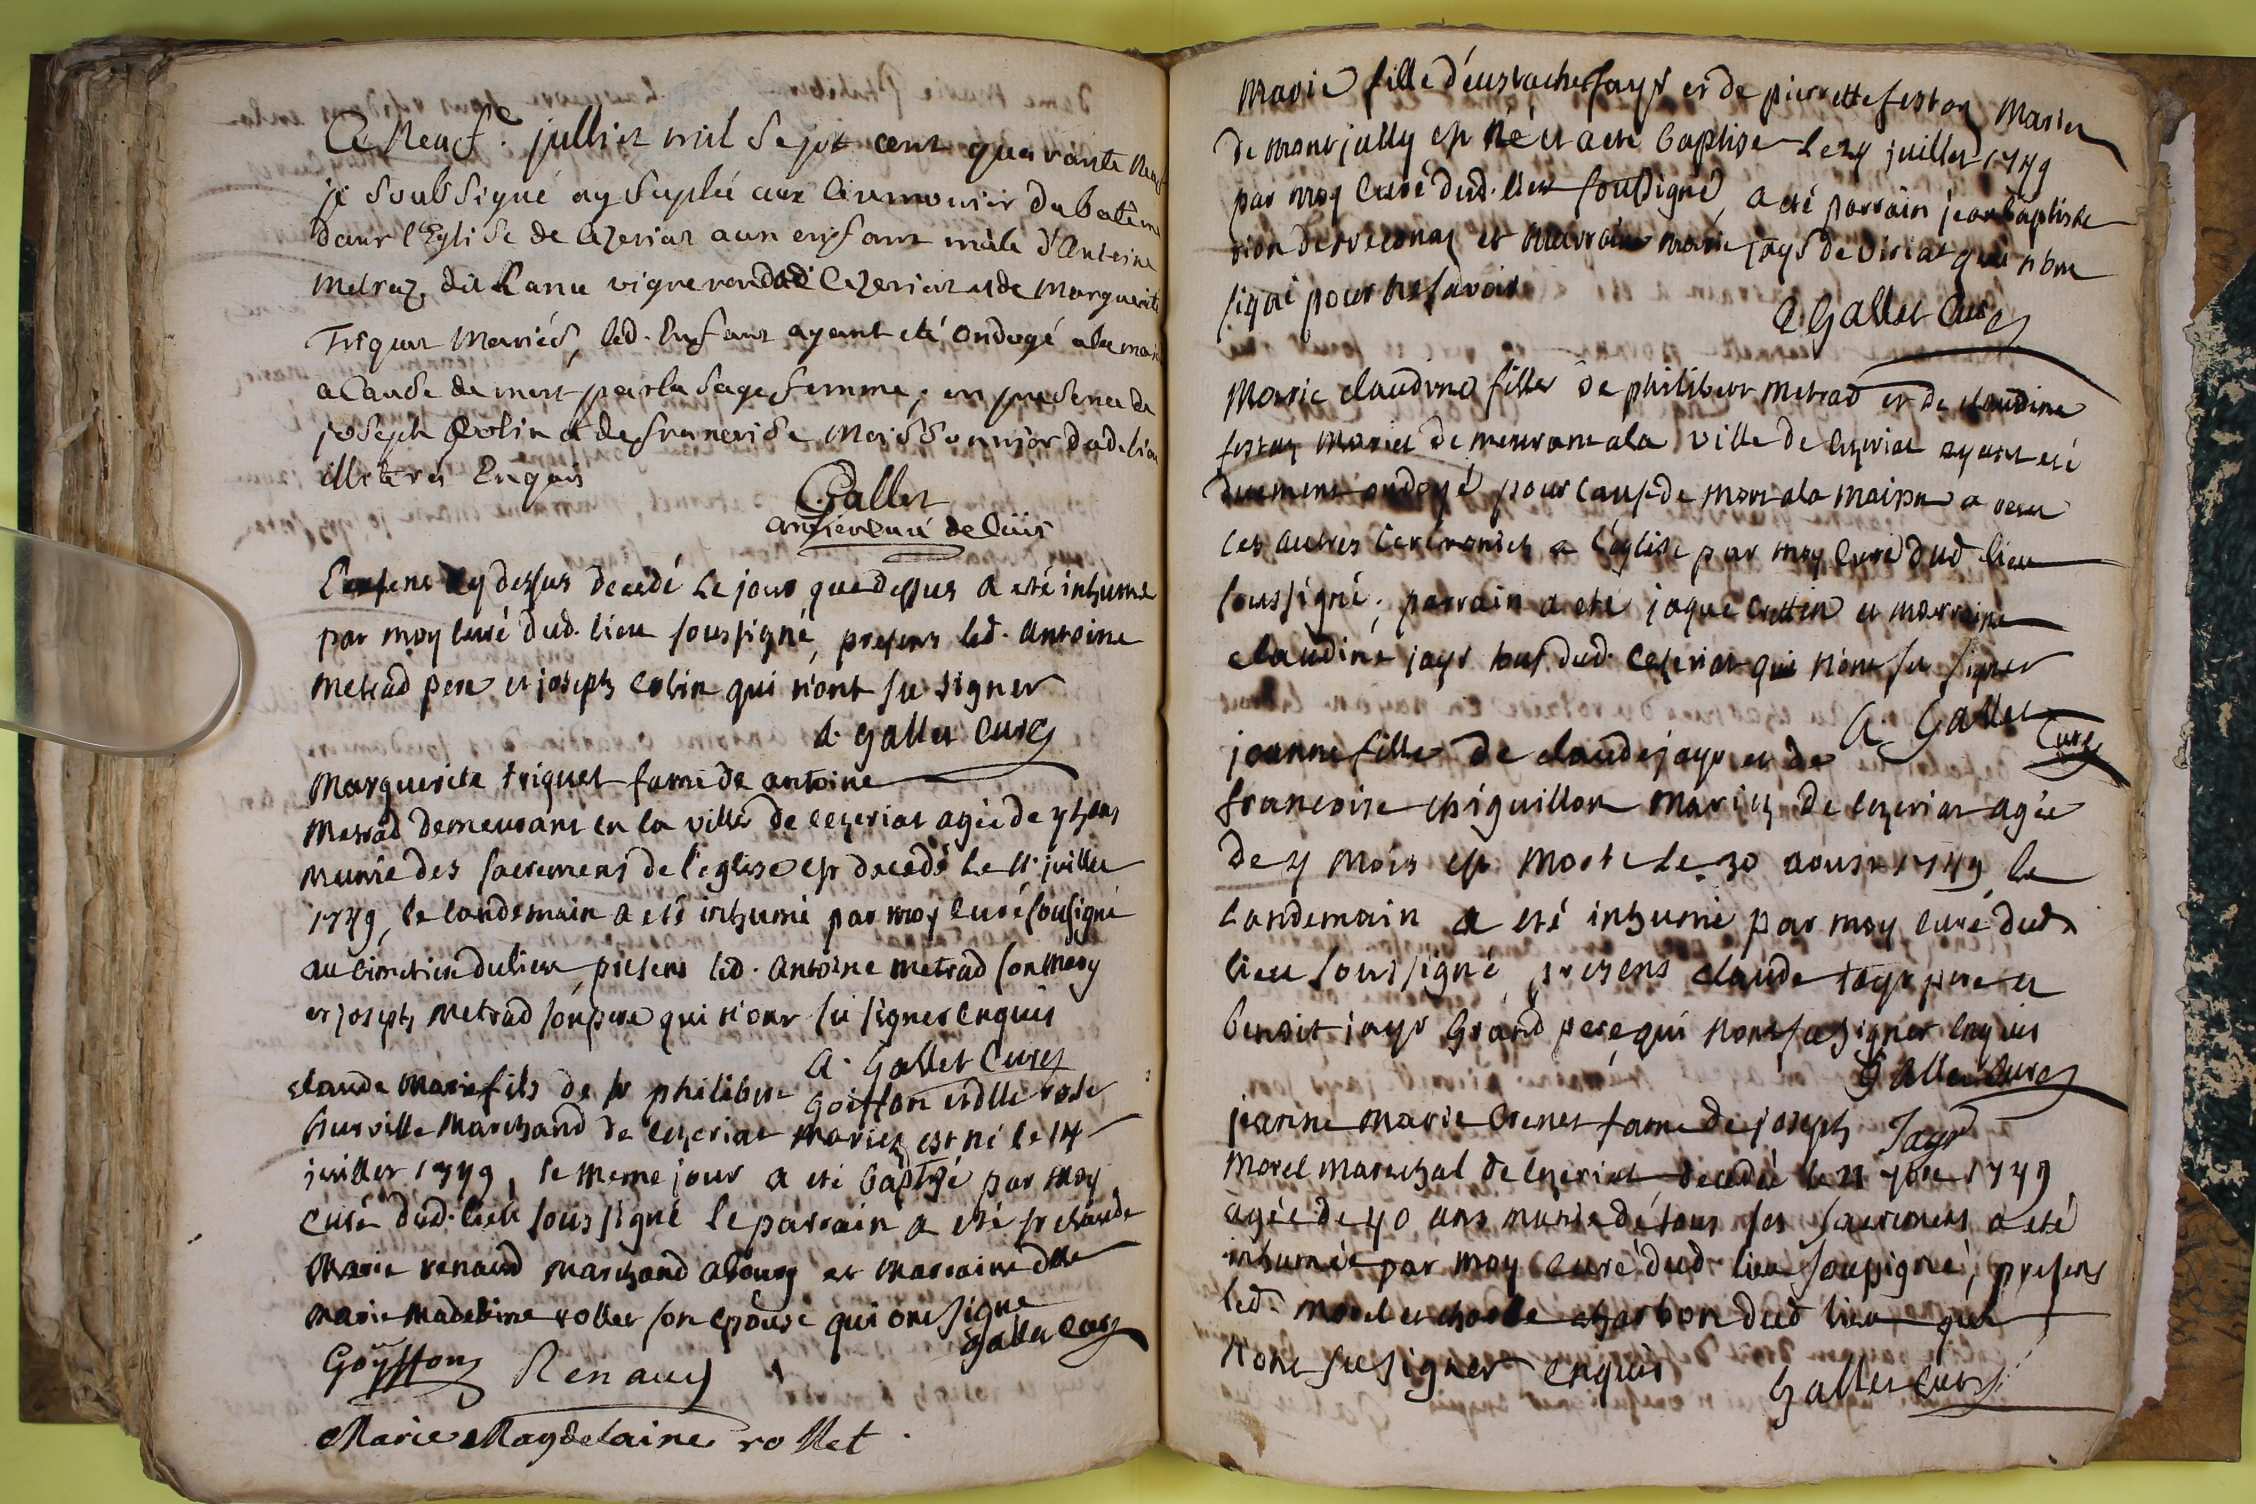 Ce Neuf.e julliet mil sept cent quarante neuf
je soubsigné ay suplée aux ceremonies du batême
dans l'Eglise de Cezeriat a un enfant mâle d'Antoine
Metraz dit Lanu vigneron dud Cezeriat et de Marguerite
Triquet Mariés, led. Enfant ayant eté ondoyé a la maison
a Cause de mort par la sage femme, en presence de
joseph Colin et de francoise Moissonnier dudt lieu
illiterés Enquis
Gallet
ancien curé de
L'enfent cy dessus decedé le jour que dessus a eté inhumé
par moy curé dud. lieu soussigné, presens led. antoine
metrad pere et joseph colin qui n'ont su signer
A. Gallet Curé
Marguerite triquet fame de antoine
Metrad demeurant en la ville de cezeriat agée de
munie des sacremens de l'eglise est decedé le 11. juillet
1749, le landemain a eté inhumé par moy curé sousigné
au cimetiere du lieu, presens led. antoine metrad son mary
et joseph metrad son pere qui n'ont su signer enquis
A. Gallet Curé
claude Marie fils de sr philibert Goiffon et dlle rose
marchand de cezeriat mariez est né le 14
juillet 1749, le meme jour a eté baptisé par moy
curé dud. lieu soussigné le parrain a eté sr claude
Marie renaud marchand a bourg et marraine dlle
marie madeleine rollet son epouse qui ont signe
Gallet Curé
Goyffon Renaud
Marie Magdelaine rollet.
Marie fille d'eustache jayr et de pierrette festaz Mariez
de montjully est né et a eté baptisé le 24 juillet 1749
par moy curé dud. lieu soussigné, a eté parrain jean baptiste
et marraine marie jayr de viriat qui n'ont
signé pour ne savoir
A Gallet Curé
Marie claudine fille de philibert metrad et de claudine
festaz mariez demeurant a la ville de cezeriat ayant eté
duement ondoyé pour cause de mort a la maison a receu
les autres ceremonies a l'église par moy curé dud lieu
soussigné; parrain a eté jaque crettin et marraine
claudine jayr tous dud. cezeriat qui n'ont su signer
A. Gallet Curé
jeanne fille de claude jayr et de
francoise chiguillon mariez de cezeriat agée
de 4 mois est morte le 30 aoust 1749, le
landemain a eté inhumé par moy curé dud
lieu soussigné, presens claude jayr pere et
benoit jayr Grand pere qui n'ont su signer enquis
Gallet Curé
jeanne marie crenet fame de joseph Jayr
Morel marechal de cezeriat decedée le 21 7bre 1749
agée de 40 ans munie de tous ses sacremens a eté
inhumée par moy curé dud. lieu soussigné, presens
led. morel et charle charbon dud lieu qui
n'ont su signer enquis
Gallet Curé